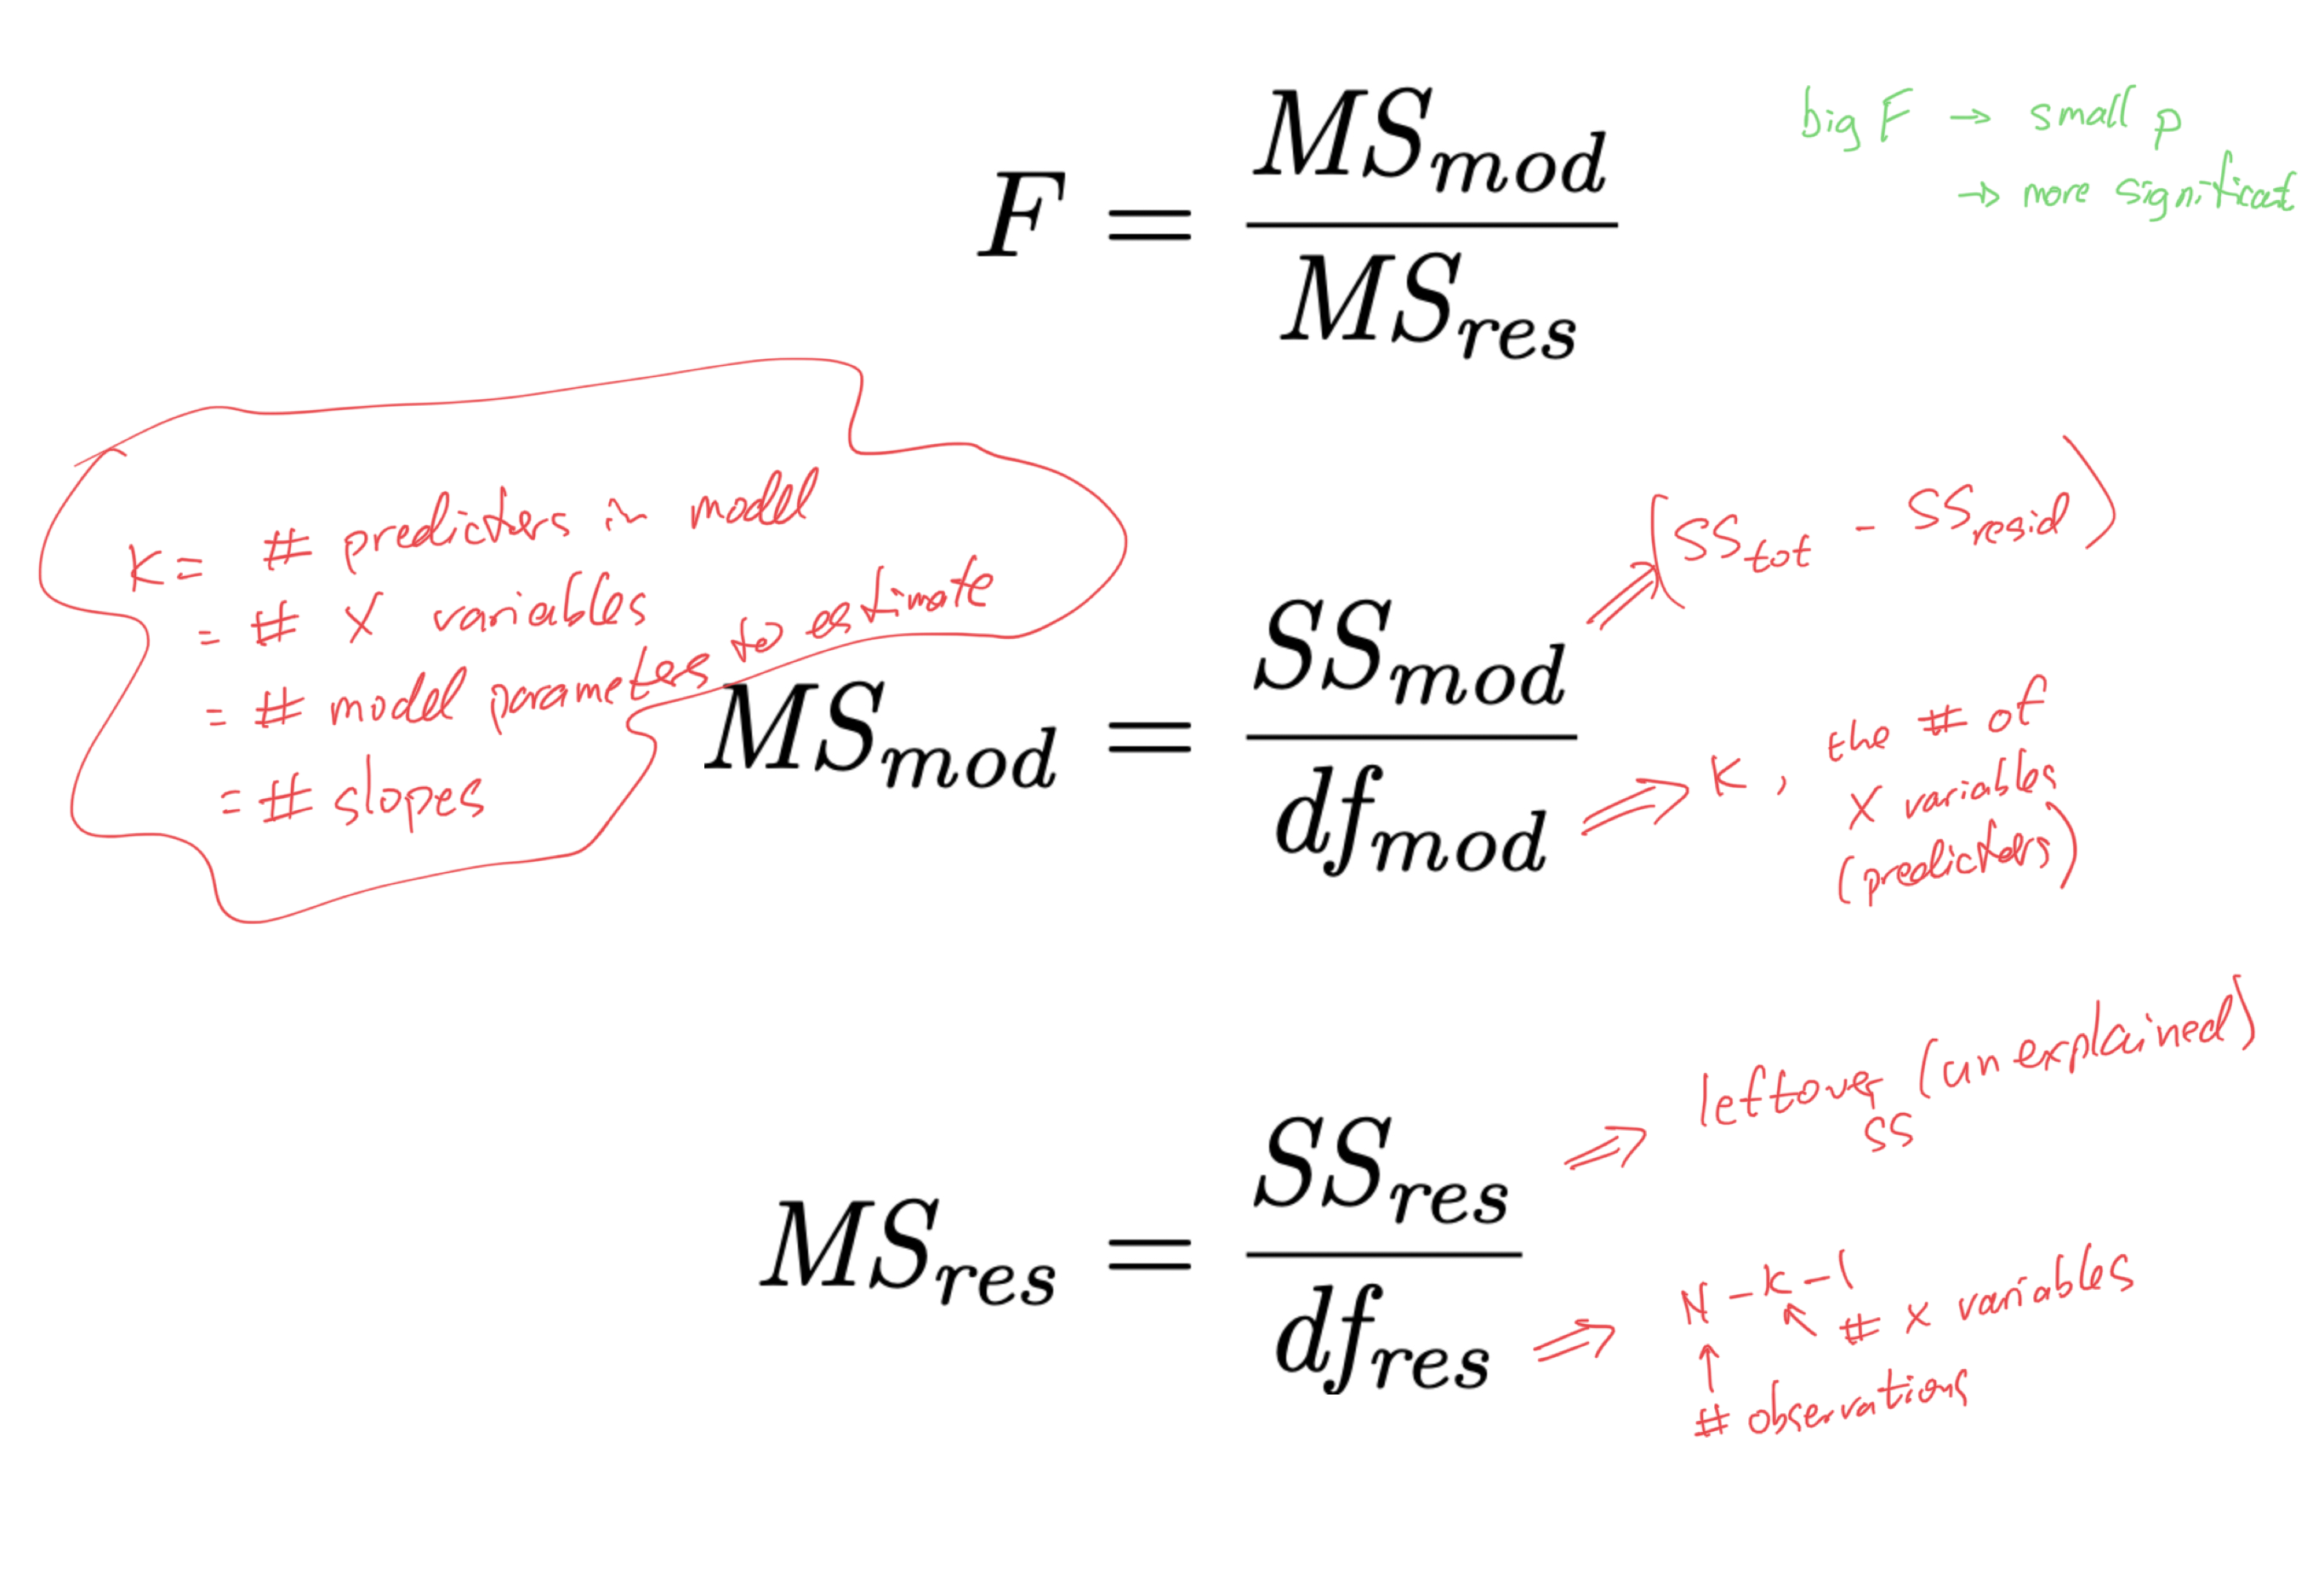 F = MS_mod / MS_res
big F → small p
→ more significat
K = # predictors in modl
= # X variables
= # modl parametes to estimate
= # slopes
MS_mod = SS_mod / df_mod
⇒ (SS_tot - SS_resid)
⇒ K, the # of
X variables
(predictors)
MS_res = SS_res / df_res
⇒ leftover (unexplained)
SS
⇒ N - K - 1
# X variables
# observations